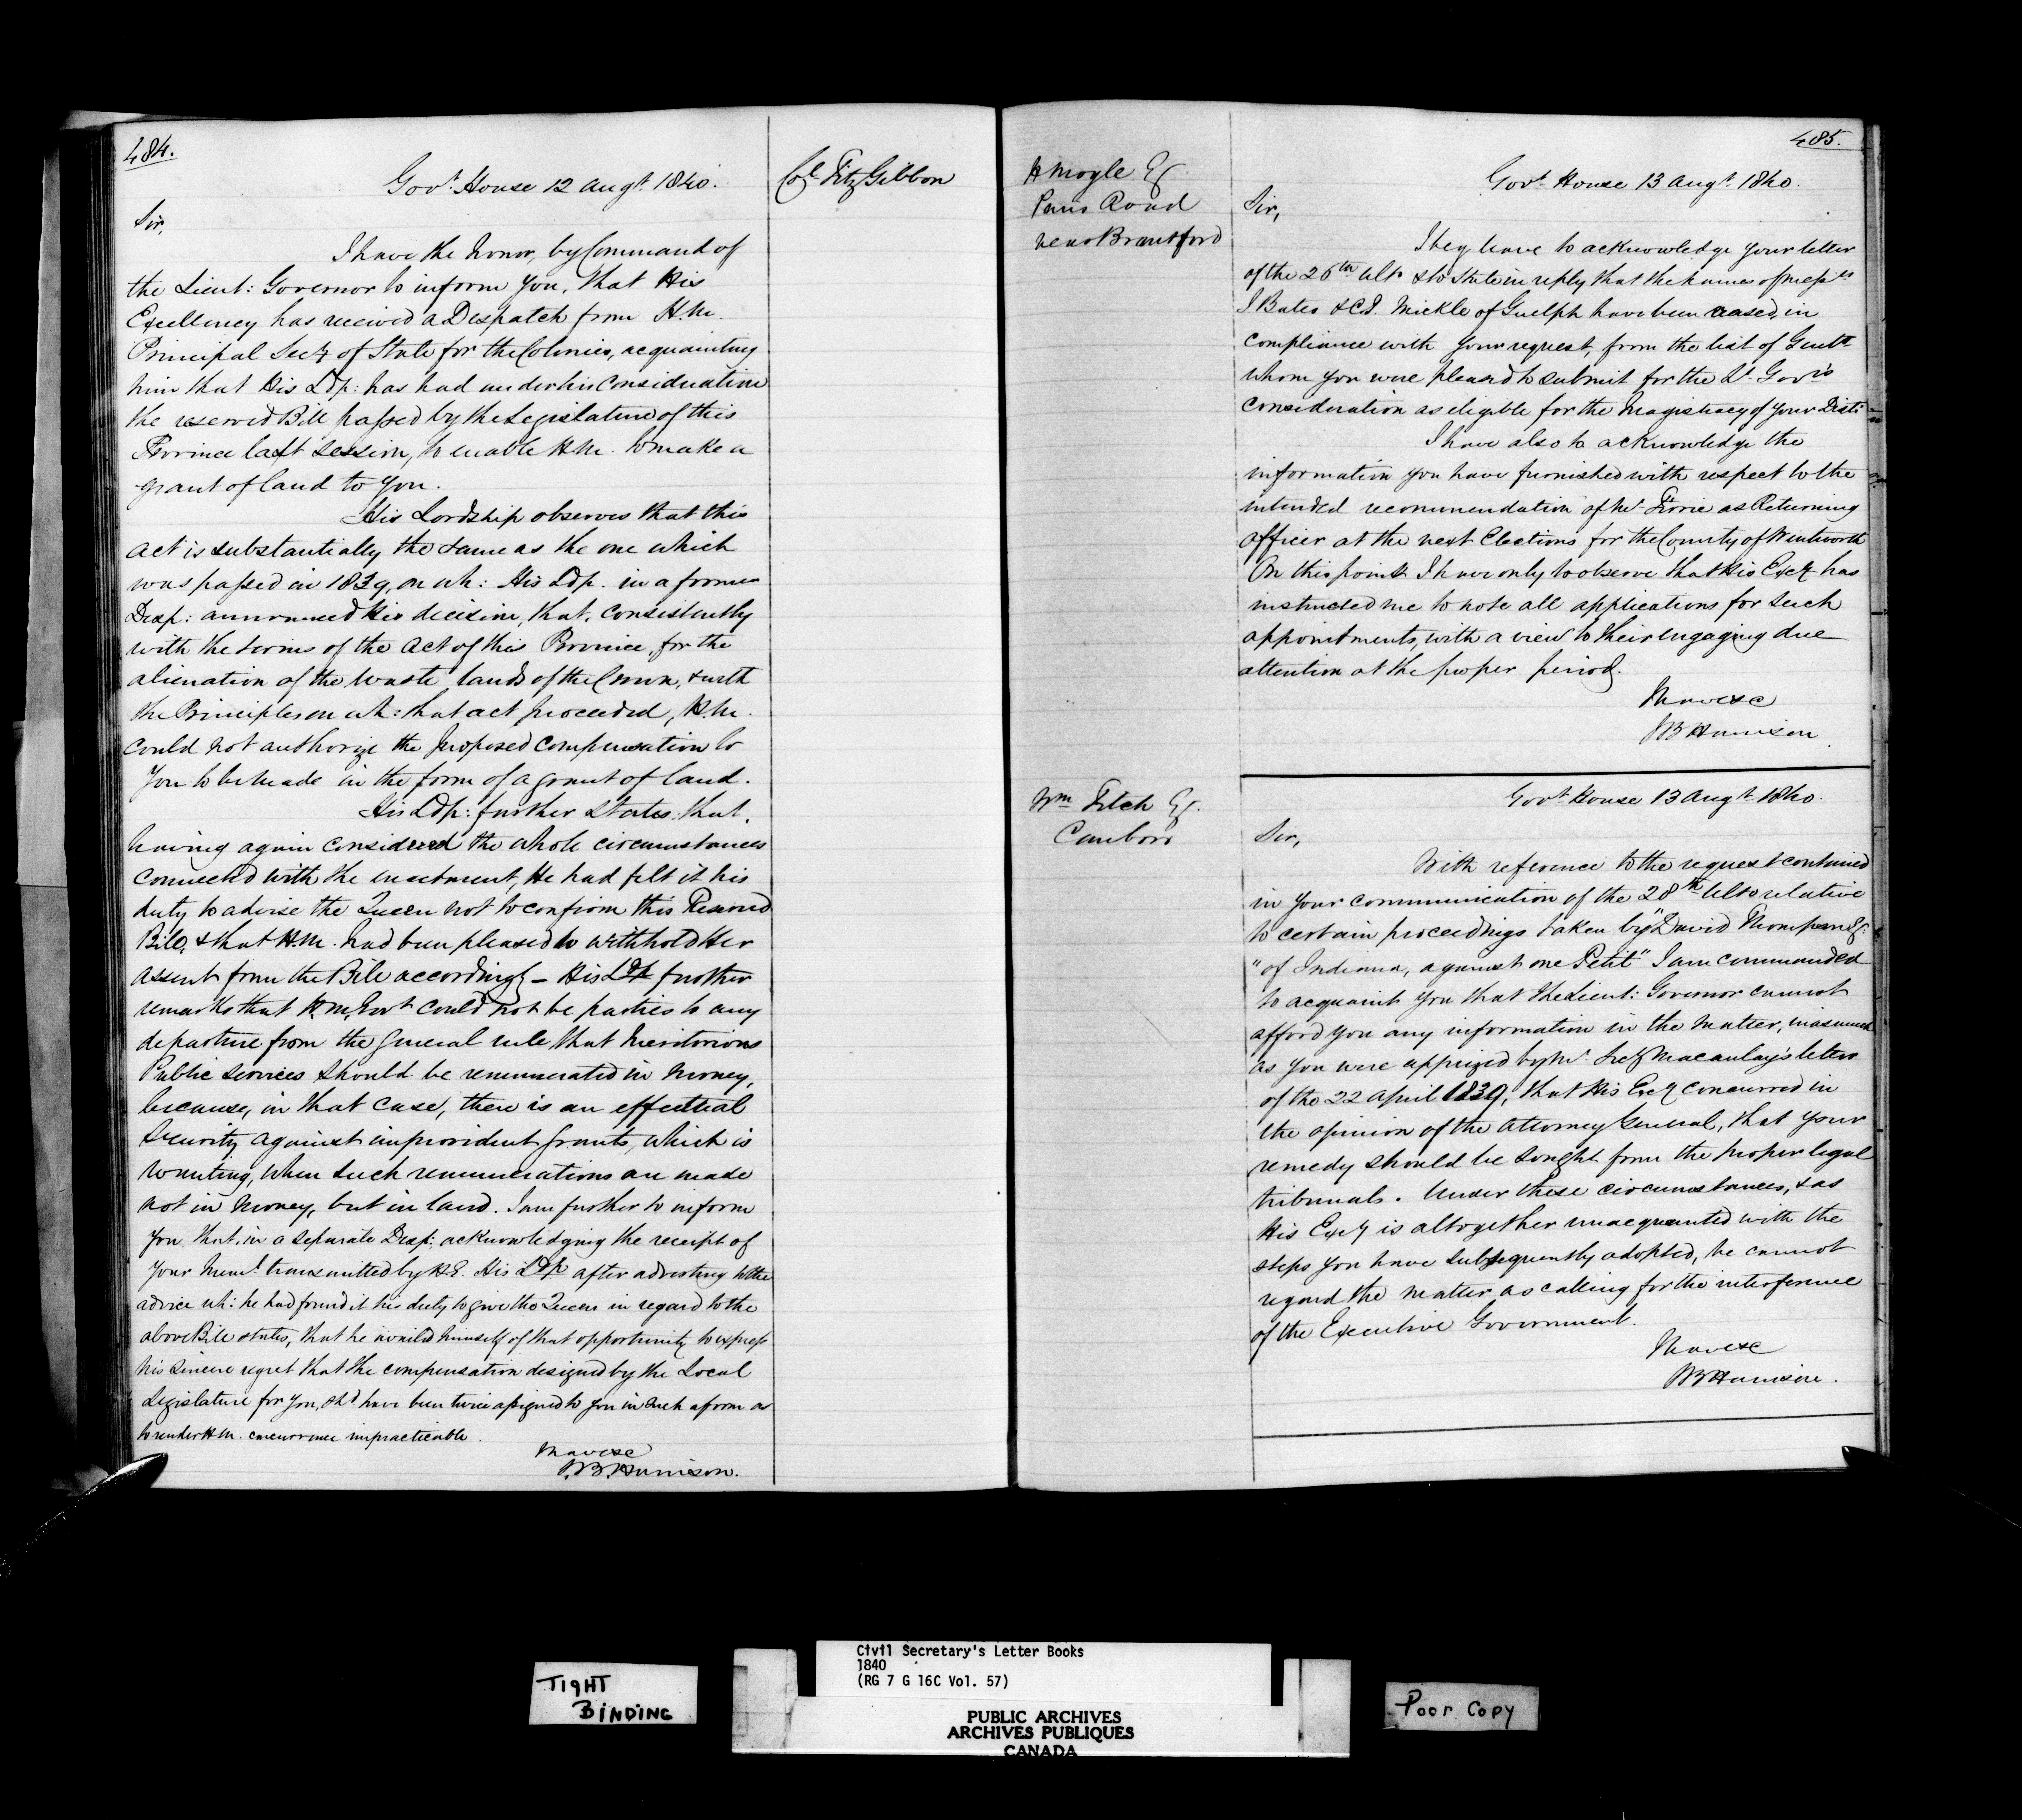 484.
Govt. House 12 Augt. 1840.
Col. FitzGibbon
Sir,
I have the honor, by Command of
the Lieut: Governor to inform you, that His
Excellency has received a Despatch from H.M.
Principal Secy of State for the Colonies, acquainting
him that His Ldp: has had under his Consideration
the reserved Bill passed by the Legislature of this
Province last Session, to enable H.M. to make a
grant of land to you.
His Lordship observes that this
Act is substantially the same as the one which
was passed in 1839, on wh: His Ldp. in a former
Desp: announced His decision, that, consistently
with the terms of the Act of this Province, for the
alienation of the waste lands of the Crown, & with
the Principles on wh: that act proceeded, H.M.
could not authorize the proposed compensation to
you to be made in the form of a grant of land.
His Ldp: further states that,
having again considered the whole circumstances
connected with the enactment, He had felt it his
duty to advise the Queen not to confirm this Reserved
Bill, & that H.M. had been pleased to withhold Her
assent from the Bill accordingly - His Ldp further
remarks that H.M. Govt could not be parties to any
departure from the general rule that meritorious
Public Services should be remunerated in Money,
because, in that case, there is an effectual
Security against improvident grants, which is
wanting, when such remunerations are made
not in money, but in land. I am further to inform
you that, in a separate Desp: acknowledging the receipt of
your Meml. transmitted by H.E. His Ldp after adverting to the
advice wh: he had found it his duty to give the Queen in regard to the
above Bill states, that he availed himself of that opportunity to express
his sincere regret that the compensation designed by the Local
Legislature for you, shd have been twice assigned to you in such a form as
to render H.M. concurrence impracticable.
I have &c
S.B. Harrison.
485.
H Moyle Esq.
Paris Road
near Brantford
Govt. House 13 Augt. 1840.
Sir,
I beg leave to acknowledge your letter
of the 26th ulto & to state in reply that the names of Messrs
J Bates & C.J. Mickle of Guelph have been erased, in
compliance with your request, from the list of Gentn
whom you were pleased to submit for the Lt. Govr's
consideration as eligible for the Magistracy of your Distt:
I have also to acknowledge the
information you have furnished with respect to the
intended recommendation of Mr. Ferrie as Returning
officer at the next Elections for the County of Wentworth
On this point I have only to observe that His Excy has
instructed me to note all applications for such
appointments, with a view to their engaging due
attention at the proper period.
I have &c
SB Harrison
Wm Fitch Esq.
Canboro
Govt. House 13 Augt. 1840.
Sir,
With reference to the request contained
in your communication of the 28th Ulto relative
to certain proceedings taken by "David Thompson Esq:
"of Indiana, against one Petit" I am commanded
to acquaint you that the Lieut: Governor cannot
afford you any information in the matter, inasmuch
as you were apprized by Mr. Secy Macaulay's letter
of the 22 April 1839, that His Excy concurred in
the opinion of the Attorney General, that your
remedy should be sought from the proper legal
tribunals. Under these circumstances, & as
His Excy is altogether unacquainted with the
steps you have subsequently adopted, he cannot
regard the matter as calling for the interference
of the Executive Government.
I have &c
SB Harrison.
TIGHT
BINDING
Civil Secretary's Letter Books
1840
(RG 7 G 16C Vol. 57)
PUBLIC ARCHIVES
ARCHIVES PUBLIQUES
CANADA
Poor Copy